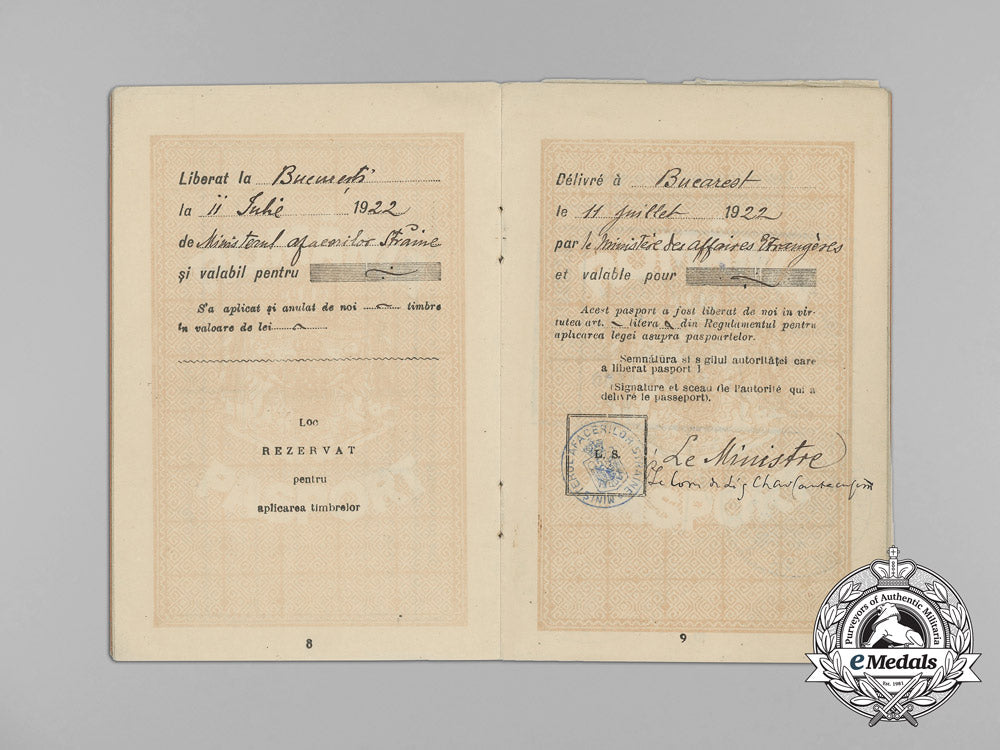 Liberat la București
la 11 Iulie 1922
de Ministerul afacerilor Străine
și valabil pentru
S'a aplicat și anulat de noi timbre
în valoare de lei
Loc
REZERVAT
pentru
aplicarea timbrelor
8
Délivré à Bucarest
le 11 juillet 1922
par le Ministère des affaires Etrangères
et valable pour
Acest pasport a fost liberat de noi in vir-
tutea art. litera a din Regulamentul pentru
aplicarea legei asupra paspoartelor.
Semnătura si sigilul autorităței care
a liberat pasport l
(Signature et sceau de l'autorité qui a
délivré le passeport).
L. S.
MINISTERUL AFACERILOR STRAINE
Le Ministre
9
Purveyors of Authentic Militaria
eMedals
Est. 1981